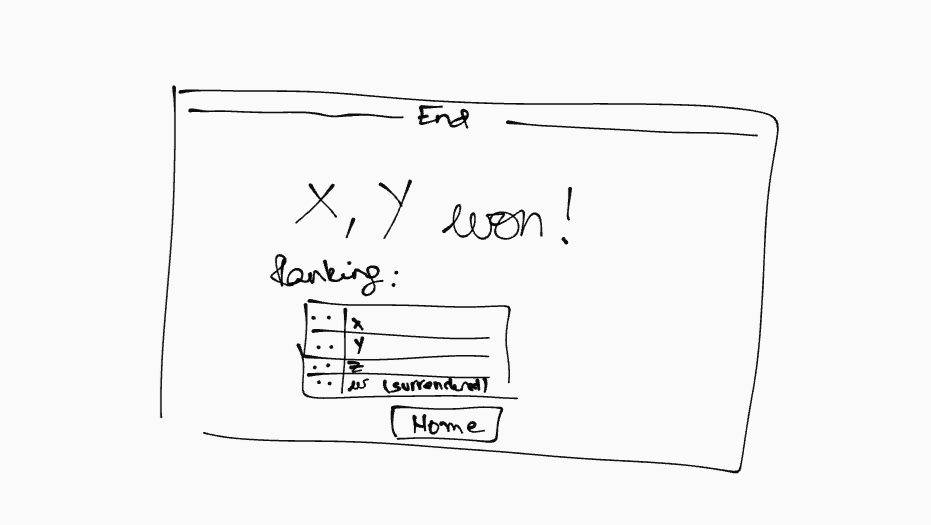 End
X, Y won!
Ranking:
.. X
.. Y
.. Z
.. w (surrendered)
Home